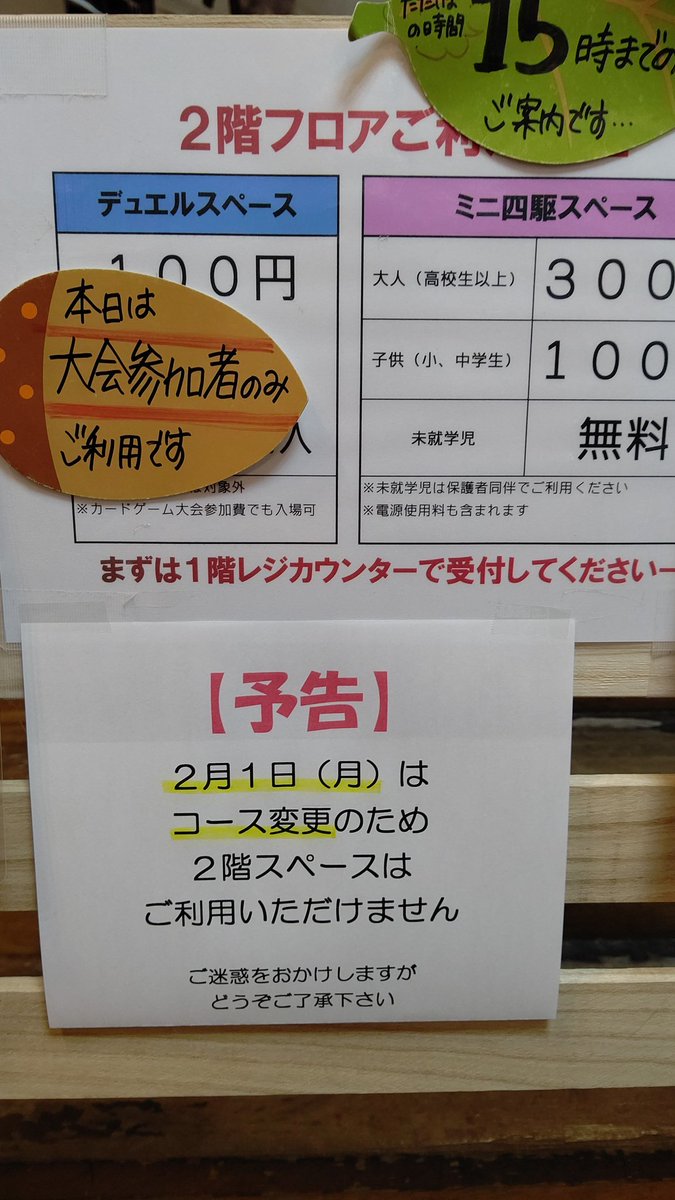 の時間
15時までの
ご案内です…
2階フロアご利
デュエルスペース
100円
本日は
大会参加者のみ
ご利用です
対象外
※カードゲーム大会参加費でも入場可
ミニ四駆スペース
大人（高校生以上）
300
子供（小、中学生）
100
未就学児
無料
※未就学児は保護者同伴でご利用ください
※電源使用料も含まれます
まずは1階レジカウンターで受付してください
【予告】
2月1日（月）は
コース変更のため
2階スペースは
ご利用いただけません
ご迷惑をおかけしますが
どうぞご了承下さい